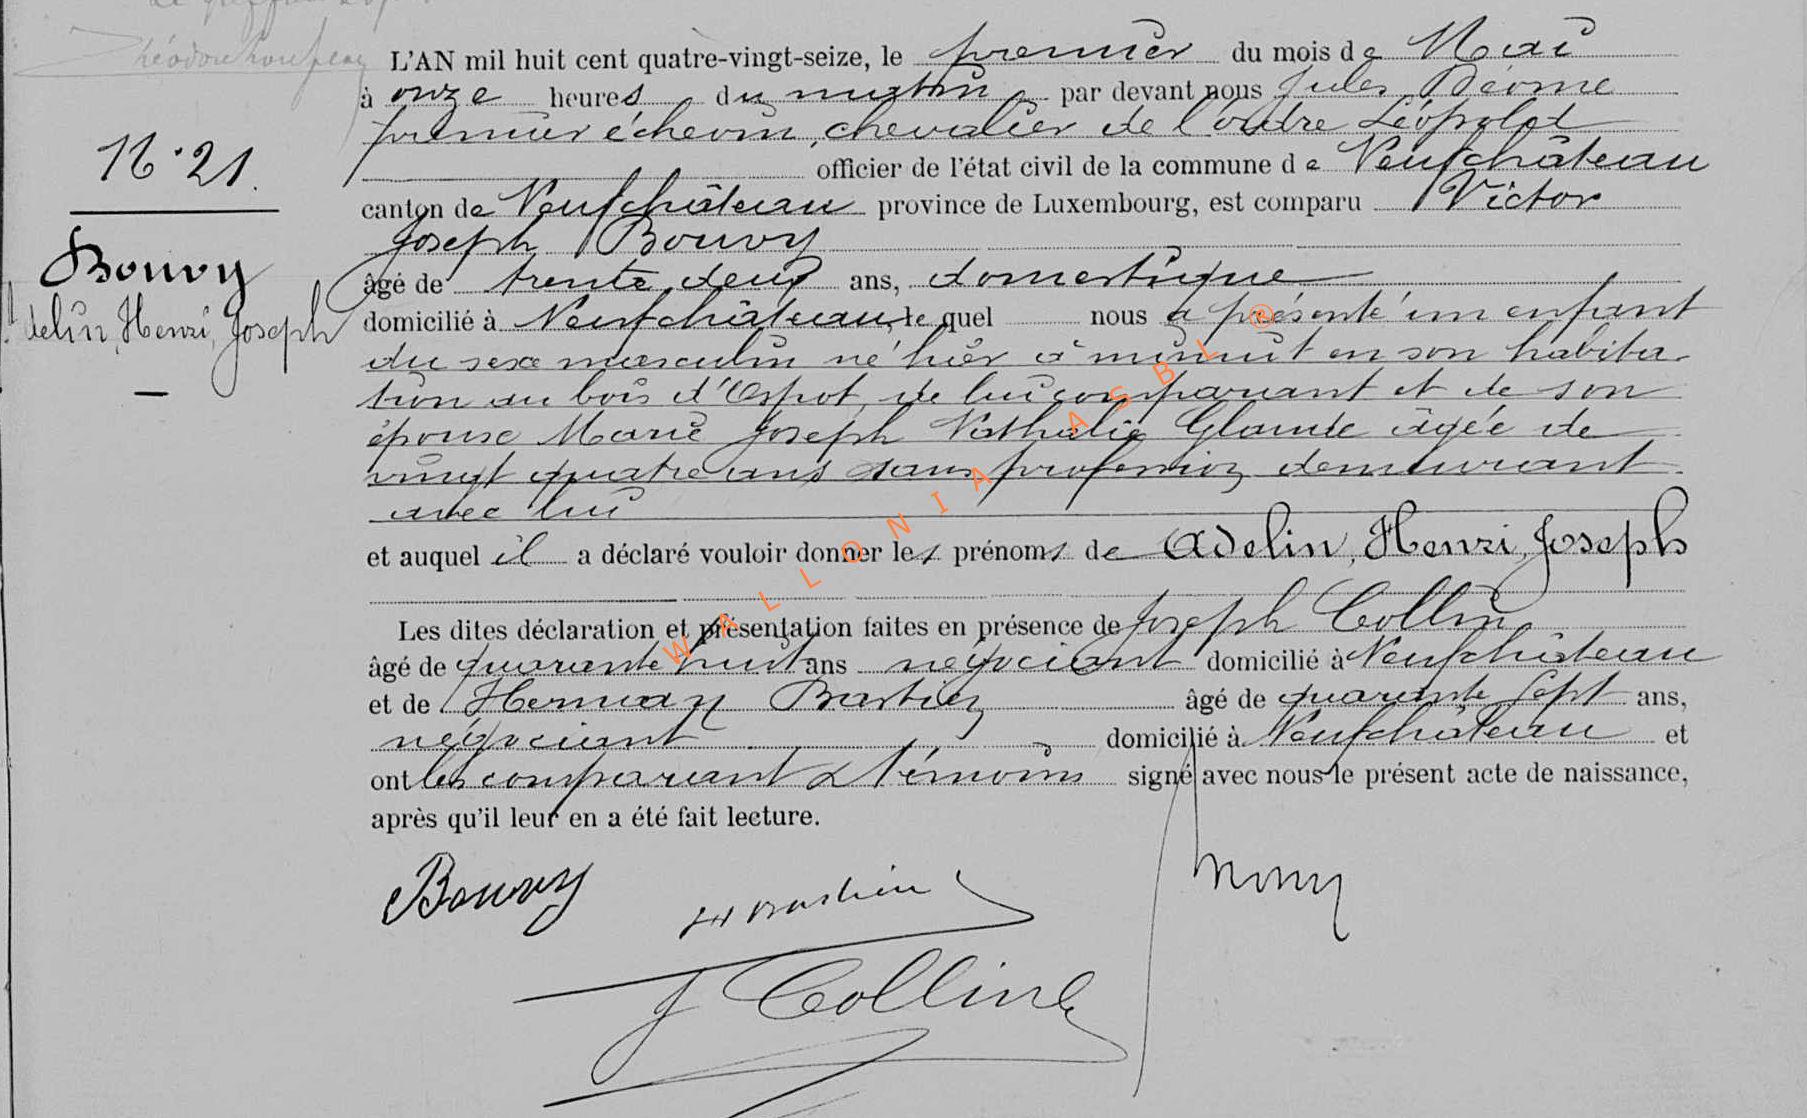 L'AN mil huit cent quatre-vingt-seize, le premier du mois de Mai
à onze heures du matin par devant nous Jules
premier échevin, chevalier de l'ordre Léopold
officier de l'état civil de la commune de Neufchâteau
canton de Neufchâteau province de Luxembourg, est comparu Victor
Joseph Bouvy
âgé de trente deux ans, domestique
domicilié à Neufchâteau, le quel nous a présenté un enfant
du sexe masculin né hier à minuit en son habita-
tion au bois d'Ospot, de lui comparant et de son
épouse Marie Joseph Nathalie Glaude âgée de
vingt quatre ans sans profession demeurant
avec lui
et auquel il a déclaré vouloir donner les prénoms de Adelin, Henri, Joseph
Les dites déclaration et présentation faites en présence de Joseph Collin
âgé de quarante huit ans négociant domicilié à Neufchâteau
et de Herman Bastien âgé de quarante sept ans,
négociant domicilié à Neufchâteau et
ont les comparant & témoins signé avec nous le présent acte de naissance,
après qu'il leur en a été fait lecture.
N° 21.
Bouvy
Adelin, Henri, Joseph
Bouvy
H Bastien
J Collin
WALLONIA ASBL ®